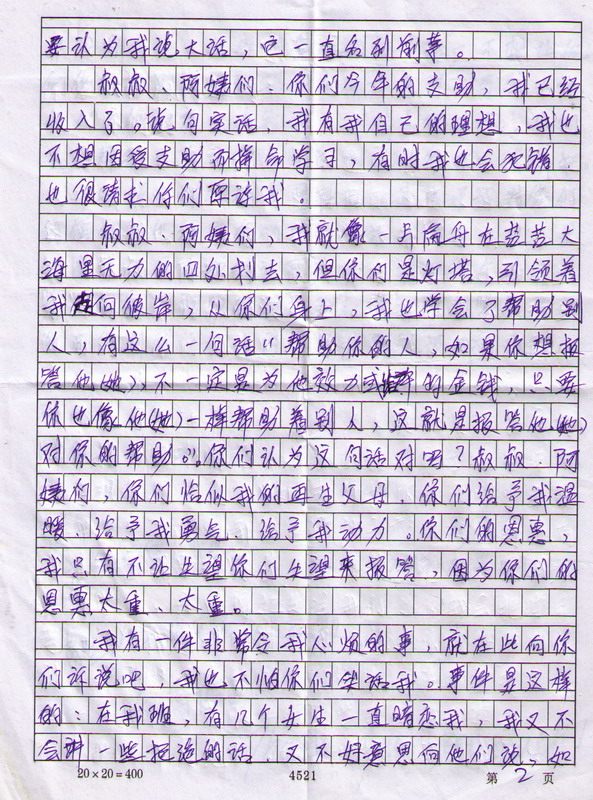 要认为我说大话，它一直名列前茅。
叔叔、阿姨们：你们今年的支助，我已经
收入了。说句实话，我有我自己的理想，我也
不想因受支助而拼命学习，有时我也会犯错，
也很请求你们原许我。
叔叔、阿姨们，我就像一片扁舟在苦苦大
海里无力的四处划去，但你们是灯塔，引领着
我走向彼岸，从你们身上，我也学会了帮助别
人，有这么一句话“帮助你的人，如果你想报
答他(她)，不一定要为他效力或的金钱，只要
你也像他(她)一样帮助着别人，这就是报答他(她)
对你的帮助。”你们认为这句话对吗？叔叔、阿
姨们，你们恰似我的再生父母，你们给予我温
暖、给予我勇气、给予我动力。你们的恩惠，
我只有不让失望你们失望来报答，因为你们的
恩惠太重、太重。
我有一件非常令我心烦的事，就在此向你
们诉说吧，我也不怕你们笑话我。事件是这样
的：在我班，有几个女生一直暗恋我，我又不
会讲一些拒绝的话，又不好意思向他们说，如
20×20=400 4521 第2页